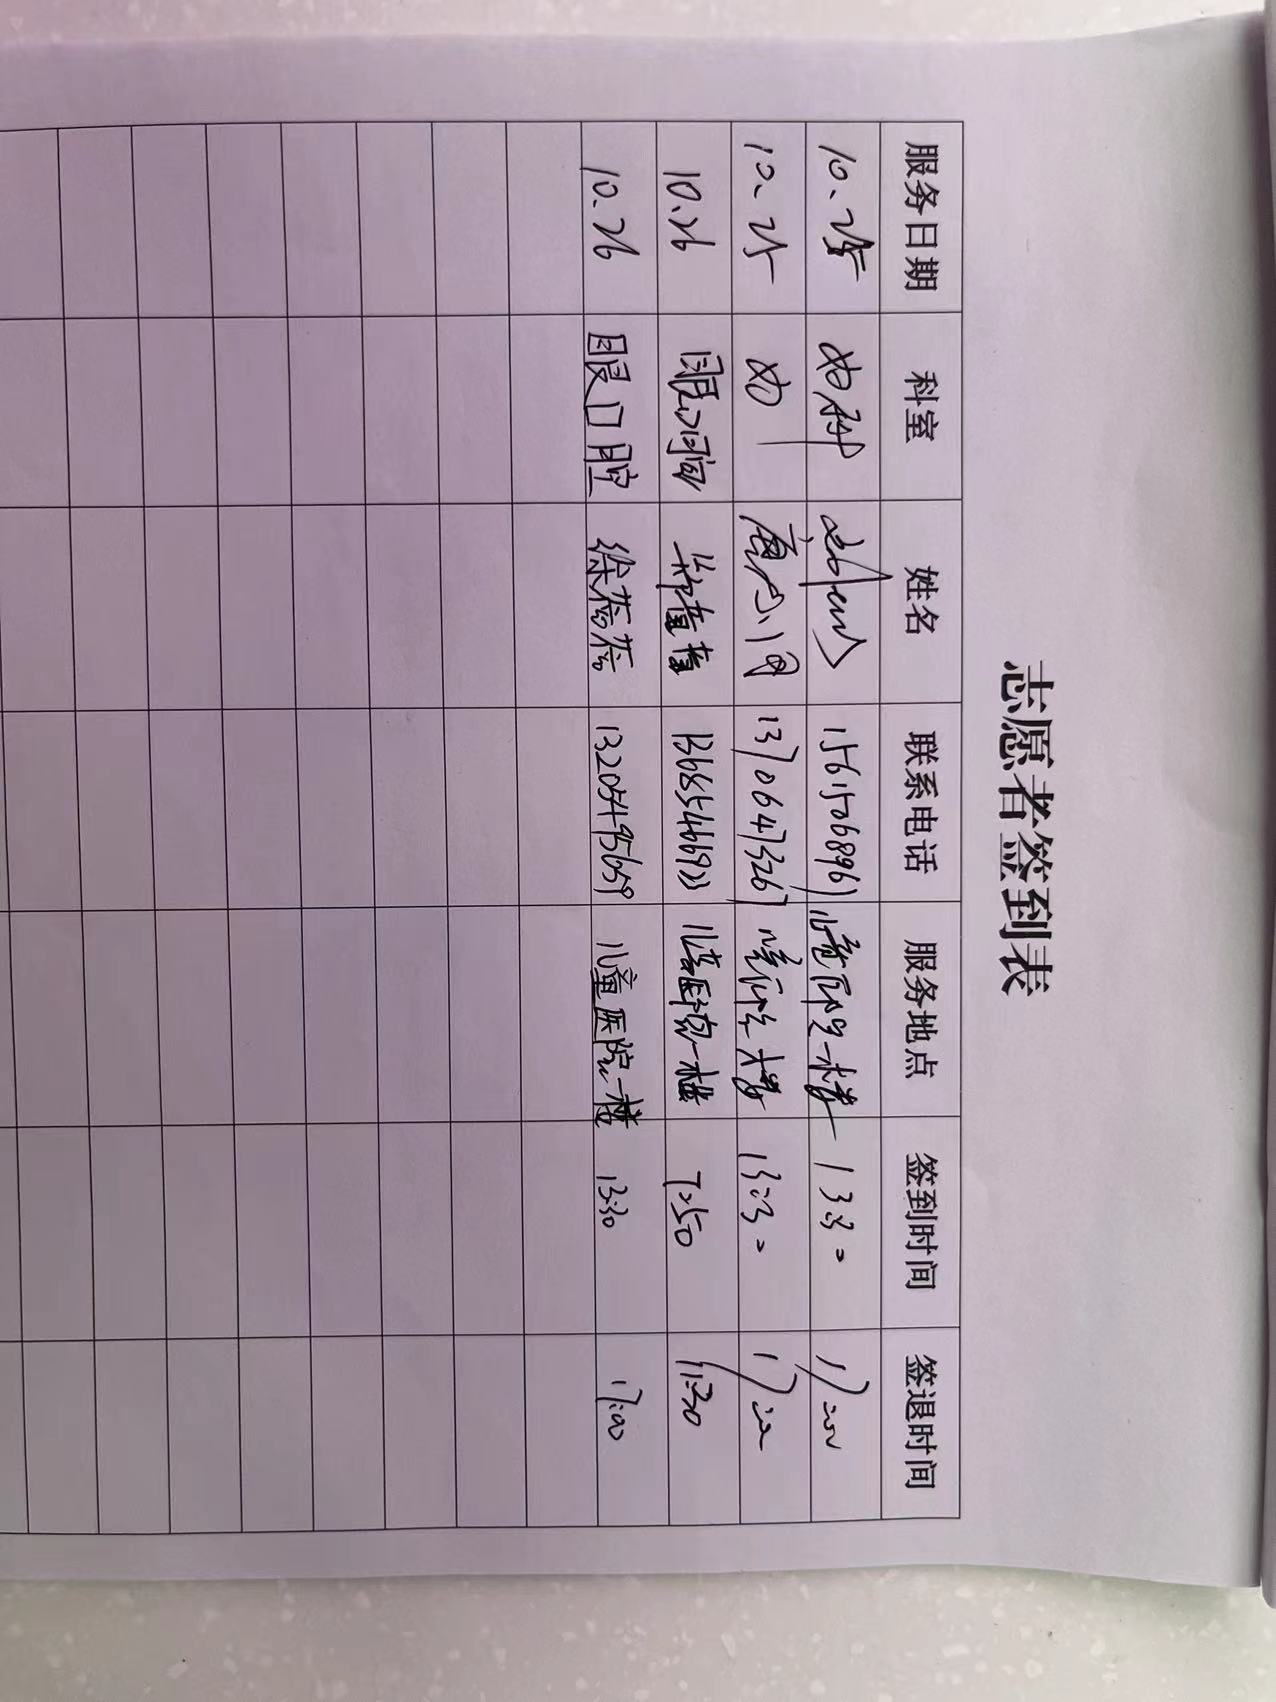 志愿者签到表
服务日期 科室 姓名 联系电话 服务地点 签到时间 签退时间
10.25 15615068961 一楼 13:30 17:00
10.25 13706473267 楼 13:30 17:00
10.26 眼口 13685466923 儿童医院一楼 7:50 11:30
10.26 眼口腔 徐蓓蓓 13205495659 儿童医院一楼 13:30 17:00